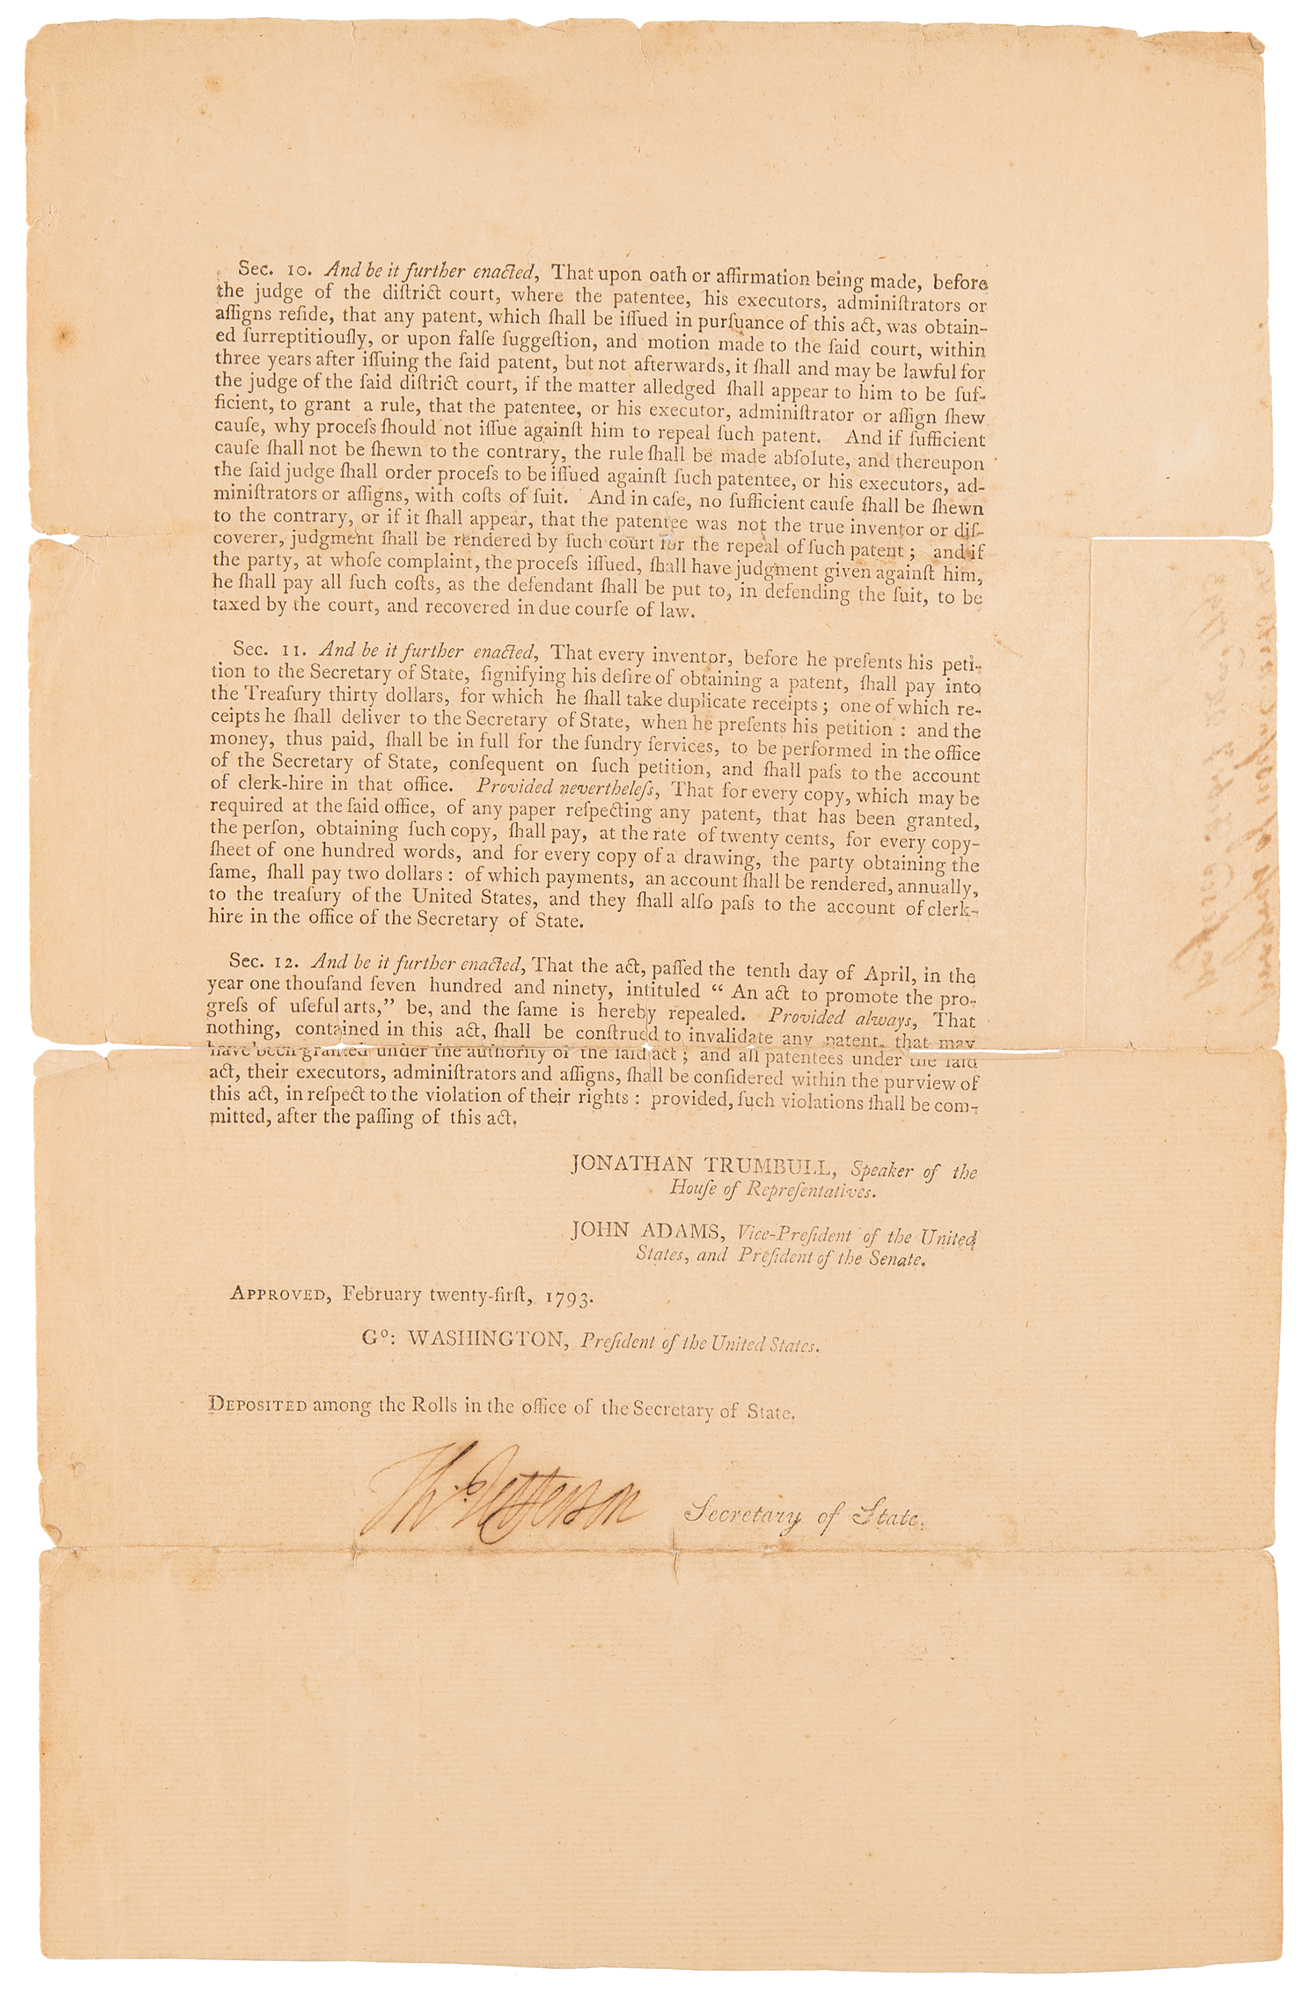 Sec. 10. And be it further enacted, That upon oath or affirmation being made, before
the judge of the diſtrict court, where the patentee, his executors, adminiſtrators or
aſſigns reſide, that any patent, which ſhall be iſſued in purſuance of this act, was obtain-
ed ſurreptitiouſly, or upon falſe ſuggeſtion, and motion made to the ſaid court, within
three years after iſſuing the ſaid patent, but not afterwards, it ſhall and may be lawful for
the judge of the ſaid diſtrict court, if the matter alledged ſhall appear to him to be ſuf-
ficient, to grant a rule, that the patentee, or his executor, adminiſtrator or aſſign ſhew
cauſe, why proceſs ſhould not iſſue againſt him to repeal ſuch patent. And if ſufficient
cauſe ſhall not be ſhewn to the contrary, the rule ſhall be made abſolute, and thereupon
the ſaid judge ſhall order proceſs to be iſſued againſt ſuch patentee, or his executors, ad-
miniſtrators or aſſigns, with coſts of ſuit. And in caſe, no ſufficient cauſe ſhall be ſhewn
to the contrary, or if it ſhall appear, that the patentee was not the true inventor or diſ-
coverer, judgment ſhall be rendered by ſuch court for the repeal of ſuch patent; and if
the party, at whoſe complaint, the proceſs iſſued, ſhall have judgment given againſt him,
he ſhall pay all ſuch coſts, as the defendant ſhall be put to, in defending the ſuit, to be
taxed by the court, and recovered in due courſe of law.
Sec. 11. And be it further enacted, That every inventor, before he preſents his peti-
tion to the Secretary of State, ſignifying his deſire of obtaining a patent, ſhall pay into
the Treaſury thirty dollars, for which he ſhall take duplicate receipts; one of which re-
ceipts he ſhall deliver to the Secretary of State, when he preſents his petition: and the
money, thus paid, ſhall be in full for the ſundry ſervices, to be performed in the office
of the Secretary of State, conſequent on ſuch petition, and ſhall paſs to the account
of clerk-hire in that office. Provided nevertheleſs, That for every copy, which may be
required at the ſaid office, of any paper reſpecting any patent, that has been granted,
the perſon, obtaining ſuch copy, ſhall pay, at the rate of twenty cents, for every copy-
ſheet of one hundred words, and for every copy of a drawing, the party obtaining the
ſame, ſhall pay two dollars: of which payments, an account ſhall be rendered, annually,
to the treaſury of the United States, and they ſhall alſo paſs to the account of clerk-
hire in the office of the Secretary of State.
Sec. 12. And be it further enacted, That the act, paſſed the tenth day of April, in the
year one thouſand ſeven hundred and ninety, intituled “ An act to promote the pro-
greſs of uſeful arts,” be, and the ſame is hereby repealed. Provided always, That
nothing, contained in this act, ſhall be conſtrued to invalidate any patent, that may
have been granted under the authority of the ſaid act; and all patentees under the ſaid
act, their executors, adminiſtrators and aſſigns, ſhall be conſidered within the purview of
this act, in reſpect to the violation of their rights: provided, ſuch violations ſhall be com-
mitted, after the paſſing of this act.
JONATHAN TRUMBULL, Speaker of the
Houſe of Repreſentatives.
JOHN ADAMS, Vice-Preſident of the United
States, and Preſident of the Senate.
APPROVED, February twenty-firſt, 1793.
Go: WASHINGTON, Preſident of the United States.
DEPOSITED among the Rolls in the office of the Secretary of State.
Th: Jefferson Secretary of State.